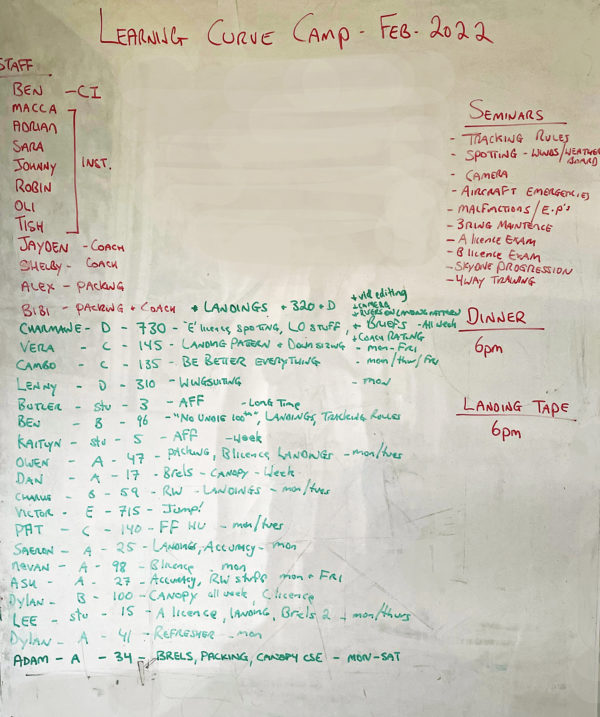 LEARNING CURVE CAMP - FEB - 2022
STAFF
BEN - CI
MACCA
ADRIAN
SARA
JOHNNY
ROBIN
OLI
TISH
INST.
JAYDEN - COACH
SHELBY - COACH
ALEX - PACKING
BIBI - PACKING + COACH + LANDINGS + 320 + D
+ VID editing
+ CAMERA
CHARMANE - D - 730 - 'E' licence, spotting, LO STUFF, + BRIEFS - All week
+ COACH RATING
VERA - C - 145 - LANDING PATTERN + DOWNSIZING - mon-FRI
CAMBO - C - 135 - BE BETTER EVERYTHING - mon/thur/Fri
LENNY - D - 310 - WINGSUITING - mon
BUTLER - stu - 3 - AFF - Long Time
BEN - B - 96 - "NO UNDIE 100th", LANDINGS, TRACKING RULES
KAITLYN - stu - 5 - AFF - week
OWEN - A - 47 - PACKING, B licence, LANDINGS - mon/tues
DAN - A - 17 - Brels - CANOPY - Week
CHARLIE - B - 59 - RW - LANDINGS - mon/tues
VICTOR - E - 715 - Jump!
PAT - C - 140 - FF HU - mon/tues
SAERON - A - 25 - LANDINGS, ACCURACY - mon
NAVAN - A - 98 - B licence - mon
ASH - A - 27 - Accuracy, RW stuff mon + FRI
Dylan - B - 100 - CANOPY all week, C licence
LEE - stu - 15 - A licence, LANDING, Brels 2 - mon/thurs
Dylan - A - 41 - REFRESHER - mon
ADAM - A - 34 - BRELS, PACKING, CANOPY CSE - MON-SAT
SEMINARS
- TRACKING RULES
- SPOTTING - WINDS/WEATHER BOARD
- CAMERA
- AIRCRAFT EMERGENCIES
- MALFNCTIONS/E.P's
- 3 RING MAINTENCE
- A licence EXAM
- B licence EXAM
- SKYDIVE PROGRESSION
- 4WAY TRAINING
DINNER
6pm
LANDING TAPE
6pm